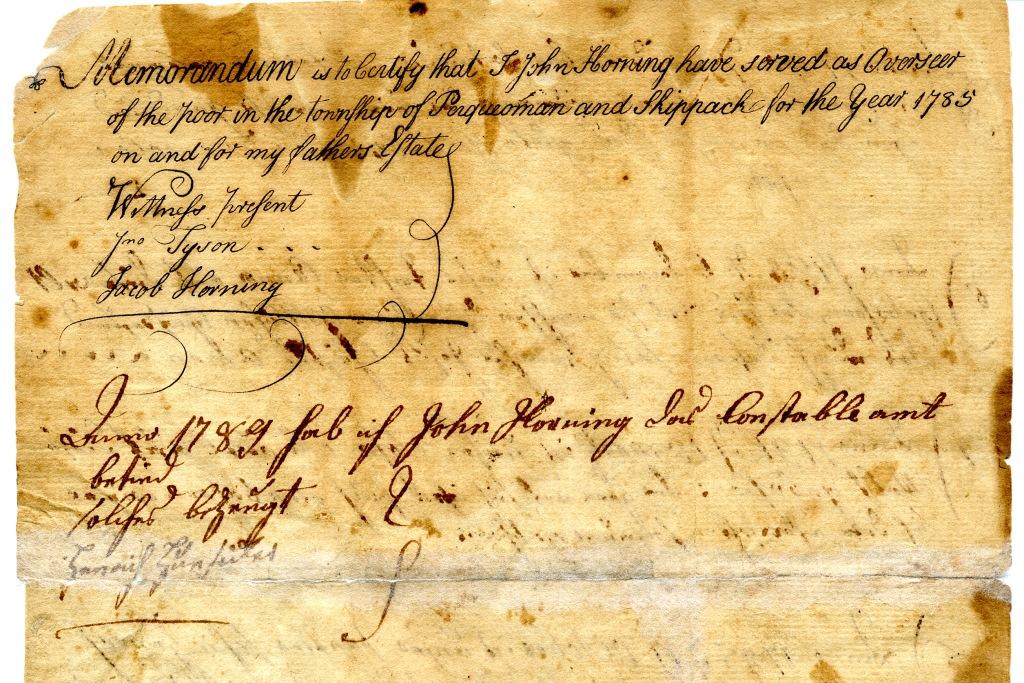 Memorandum is to Certify that I John Horning have served as Overseer
of the poor in the township of Perqueoman and Skippack for the Year 1785
on and for my fathers Estate
Wittness present
Jno Tyson . . .
Jacob Horning
Anno 1789 hab ich John Horning das Constable amt
bedind
solches bezeugt
Henrich